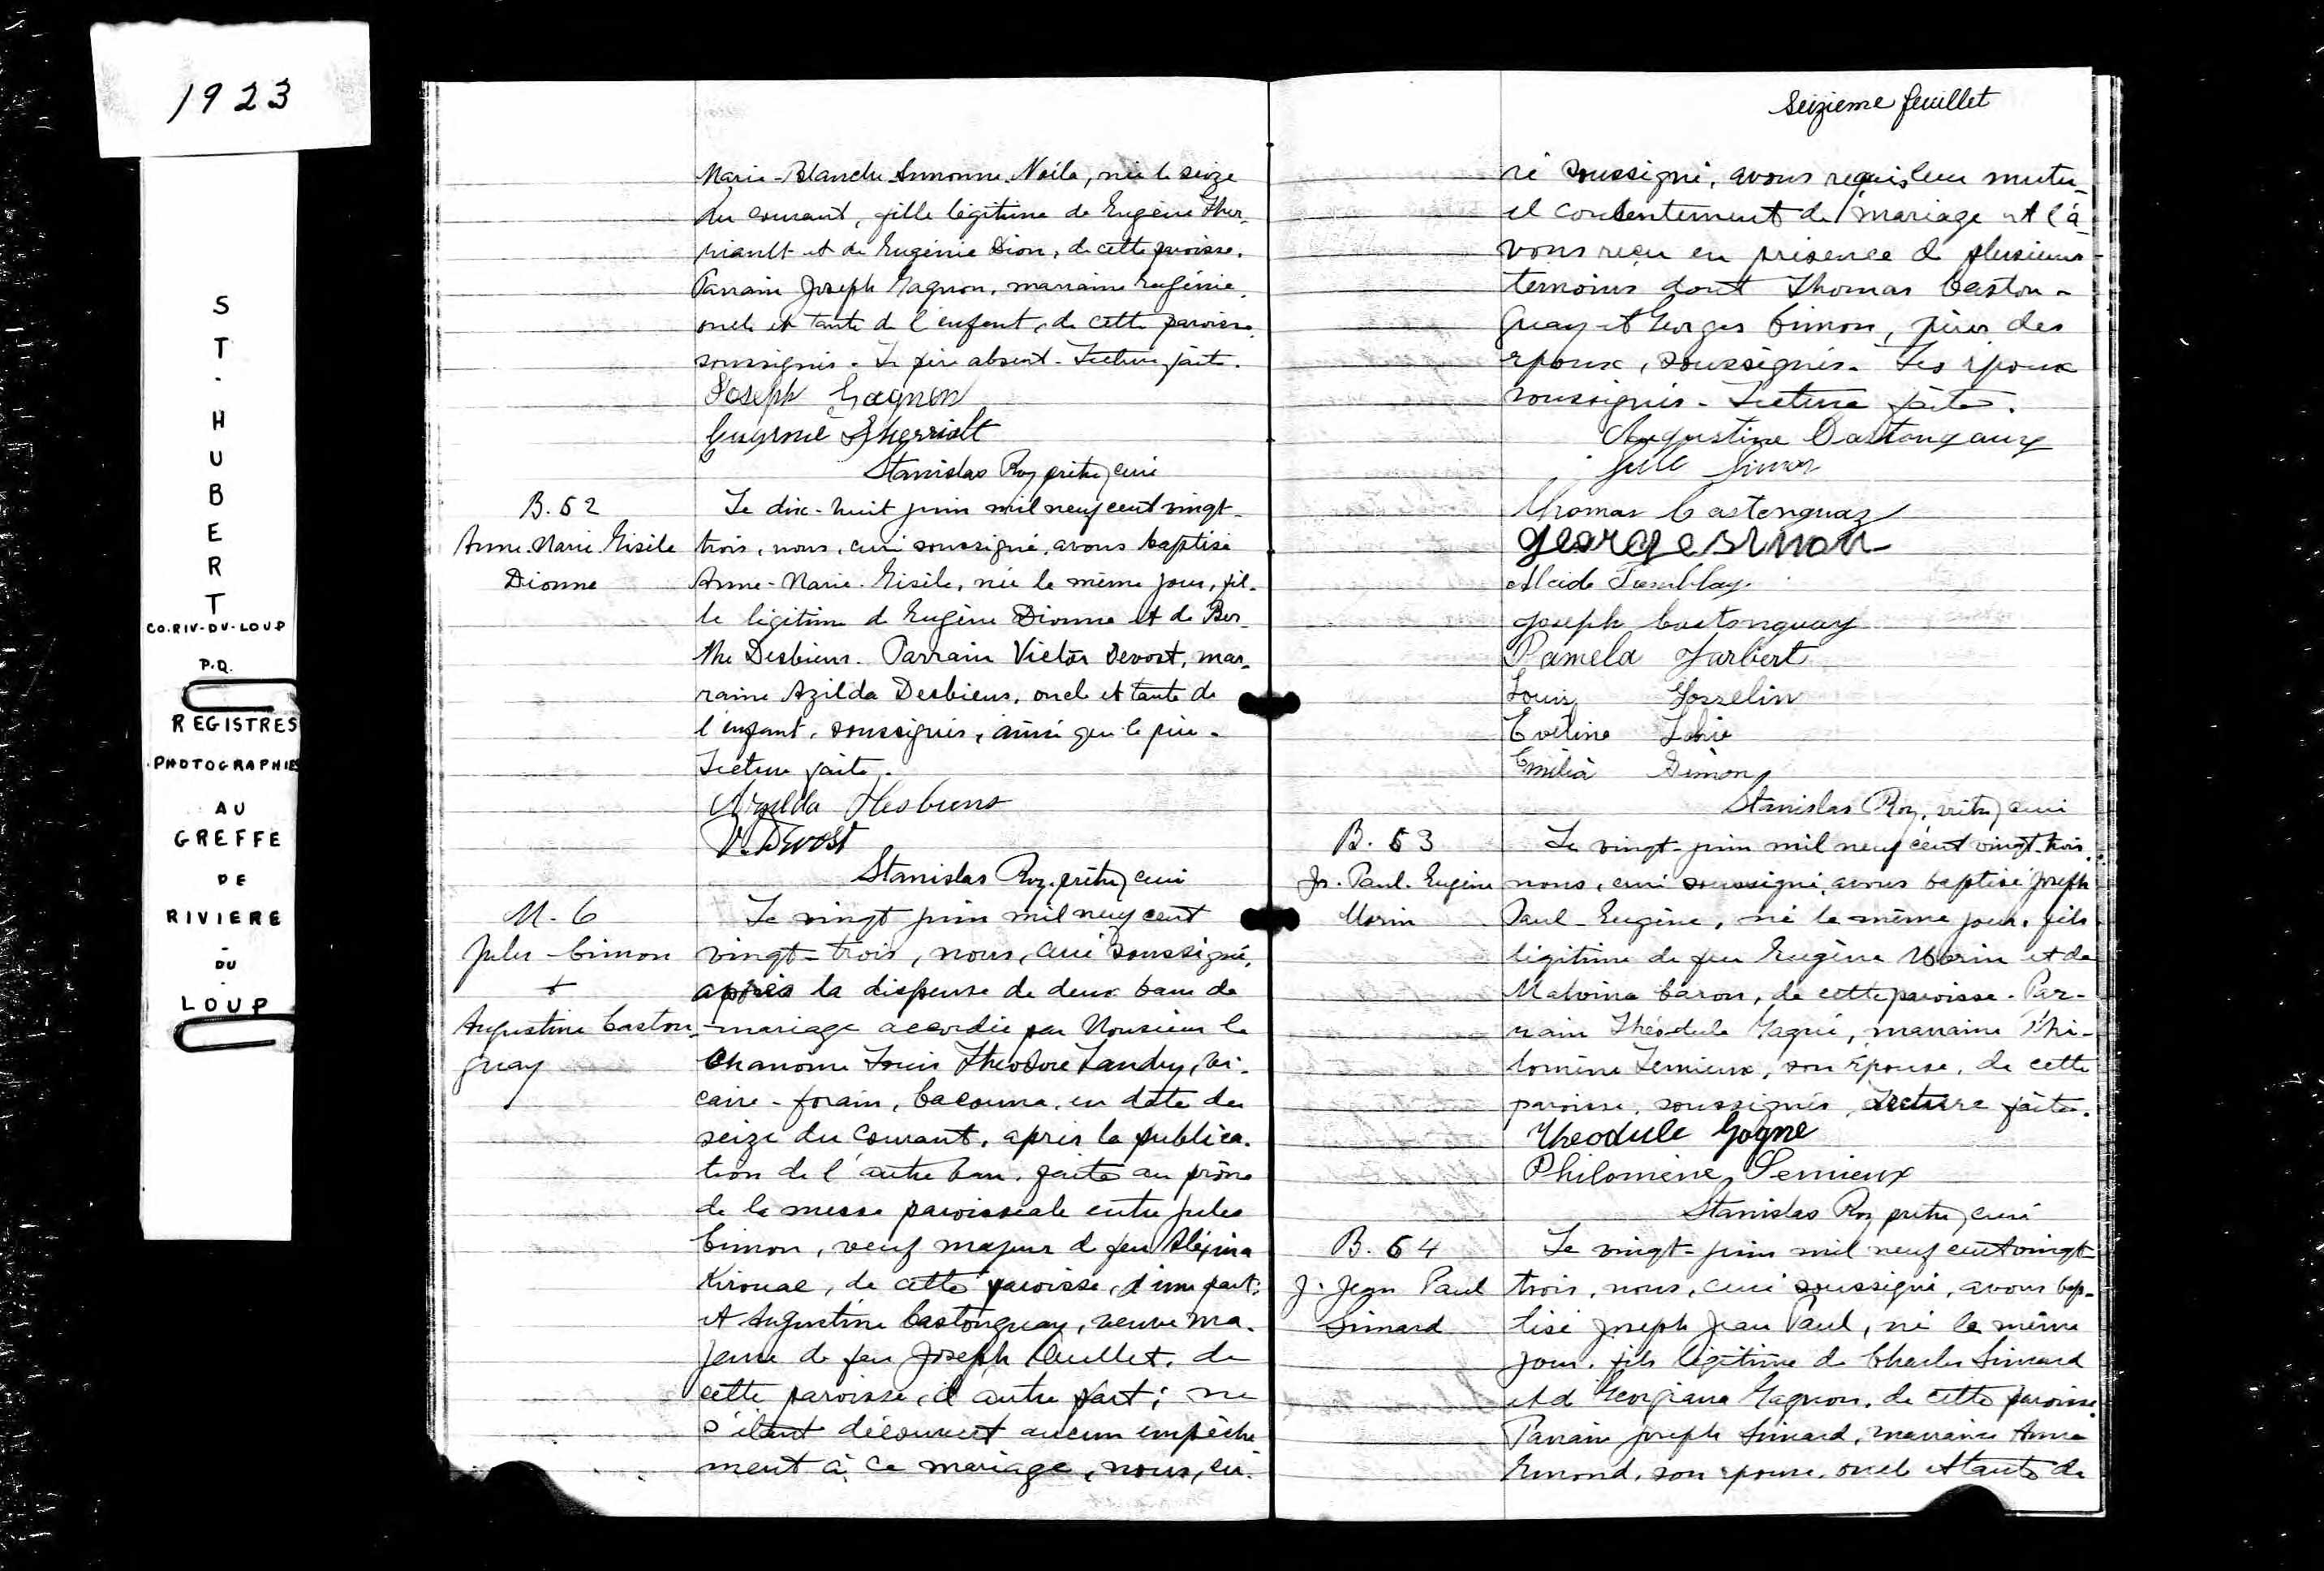 1923
ST. HUBERT
CO. RIV-DU-LOUP
P.Q.
REGISTRES
PHOTOGRAPHIES
AU
GREFFE
DE
RIVIERE
-
DU
-
LOUP
Marie-Blanche Noëla, née le seize
du courant, fille légitime de Eugène Ther-
riault et de Eugénie Dion, de cette paroisse.
Parrain Joseph Gagnon, marraine Eugénie
oncle et tante de l'enfant, de cette paroisse
soussignés. Le père absent. Lecture faite.
Joseph Gagnon
Eugénie Therriolt
Stanislas Roy, prêtre, curé
B. 52
Anne-Marie Gisèle
Dionne
Le dix-huit juin mil neuf cent vingt-
trois, nous, curé soussigné, avons baptisé
Anne-Marie-Gisèle, née le même jour, fil-
le légitime d Eugène Dionne et de Ber-
the Desbiens. Parrain Victor Devost, mar-
raine Azilda Desbiens, oncle et tante de
l'enfant, soussignés, ainsi que le père.
Lecture faite.
Azilda Desbiens
V. Devost
Stanislas Roy, prêtre, curé
M. 6
Jules Cimon
+
Augustine Caston-
guay
Le vingt juin mil neuf cent
vingt-trois, nous, curé soussigné,
après la dispense de deux bans de
mariage accordée par Monsieur le
Chanoine Louis Théodore Landry, vi-
caire-forain, Cacouna, en date du
seize du courant, après la publica-
tion de l'autre ban, faite au prône
de la messe paroissiale entre Jules
Cimon, veuf majeur d feu Alexina
Kirouac, de cette paroisse, d'une part;
et Augustine Castonguay, veuve ma-
jeure de feu Joseph Ouellet, de
cette paroisse, d'autre part; ne
s'étant découvert aucun empêche
ment à ce mariage, nous, cu-
Seizième feuillet
ré soussigné, avons requis leur mutu-
el consentement de mariage et l'a-
vons reçu en présence d plusieurs
témoins dont Thomas Caston-
guay et Georges Cimon, pères des
époux, soussignés. Les époux
soussignés. Lecture faite.
Augustine Castonguay
Jule Simon
Thomas Castonguay
George Simon
Alcide Tremblay
Joseph Castonguay
Pamela Jarbert
Louis Gosselin
Eveline
Emilia Simon
Stanislas Roy, prêtre, curé
B. 53
Js. Paul-Eugène
Morin
Le vingt-juin mil neuf cent vingt-trois,
nous, curé soussigné, avons baptisé Joseph
Paul-Eugène, né le même jour, fils
légitime de feu Eugène Morin et de
Malvina Caron, de cette paroisse. Par-
rain Théodule Gagné, marraine Phi-
lomène Lemieux, son épouse, de cette
paroisse, soussignés, Lecture faite.
Theodule Gagne
Philomène Lemieux
Stanislas Roy, prêtre, curé
B. 54
J. Jean Paul
Simard
Le vingt-juin mil neuf cent vingt-
trois, nous, curé soussigné, avons bap-
tisé Joseph Jean Paul, né le même
jour, fils légitime de Charles Simard
et d Georgiana Gagnon, de cette paroisse.
Parrain Joseph Simard, marraine Anna
Emond, son épouse, oncle et tante de